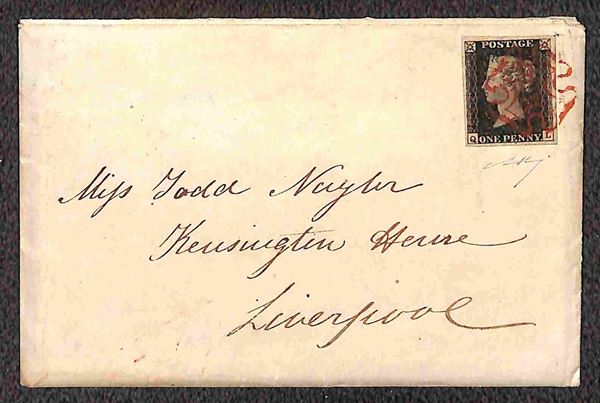 POSTAGE
Q ONE PENNY. L
Miss Todd Naylor
Kensington House
Liverpool